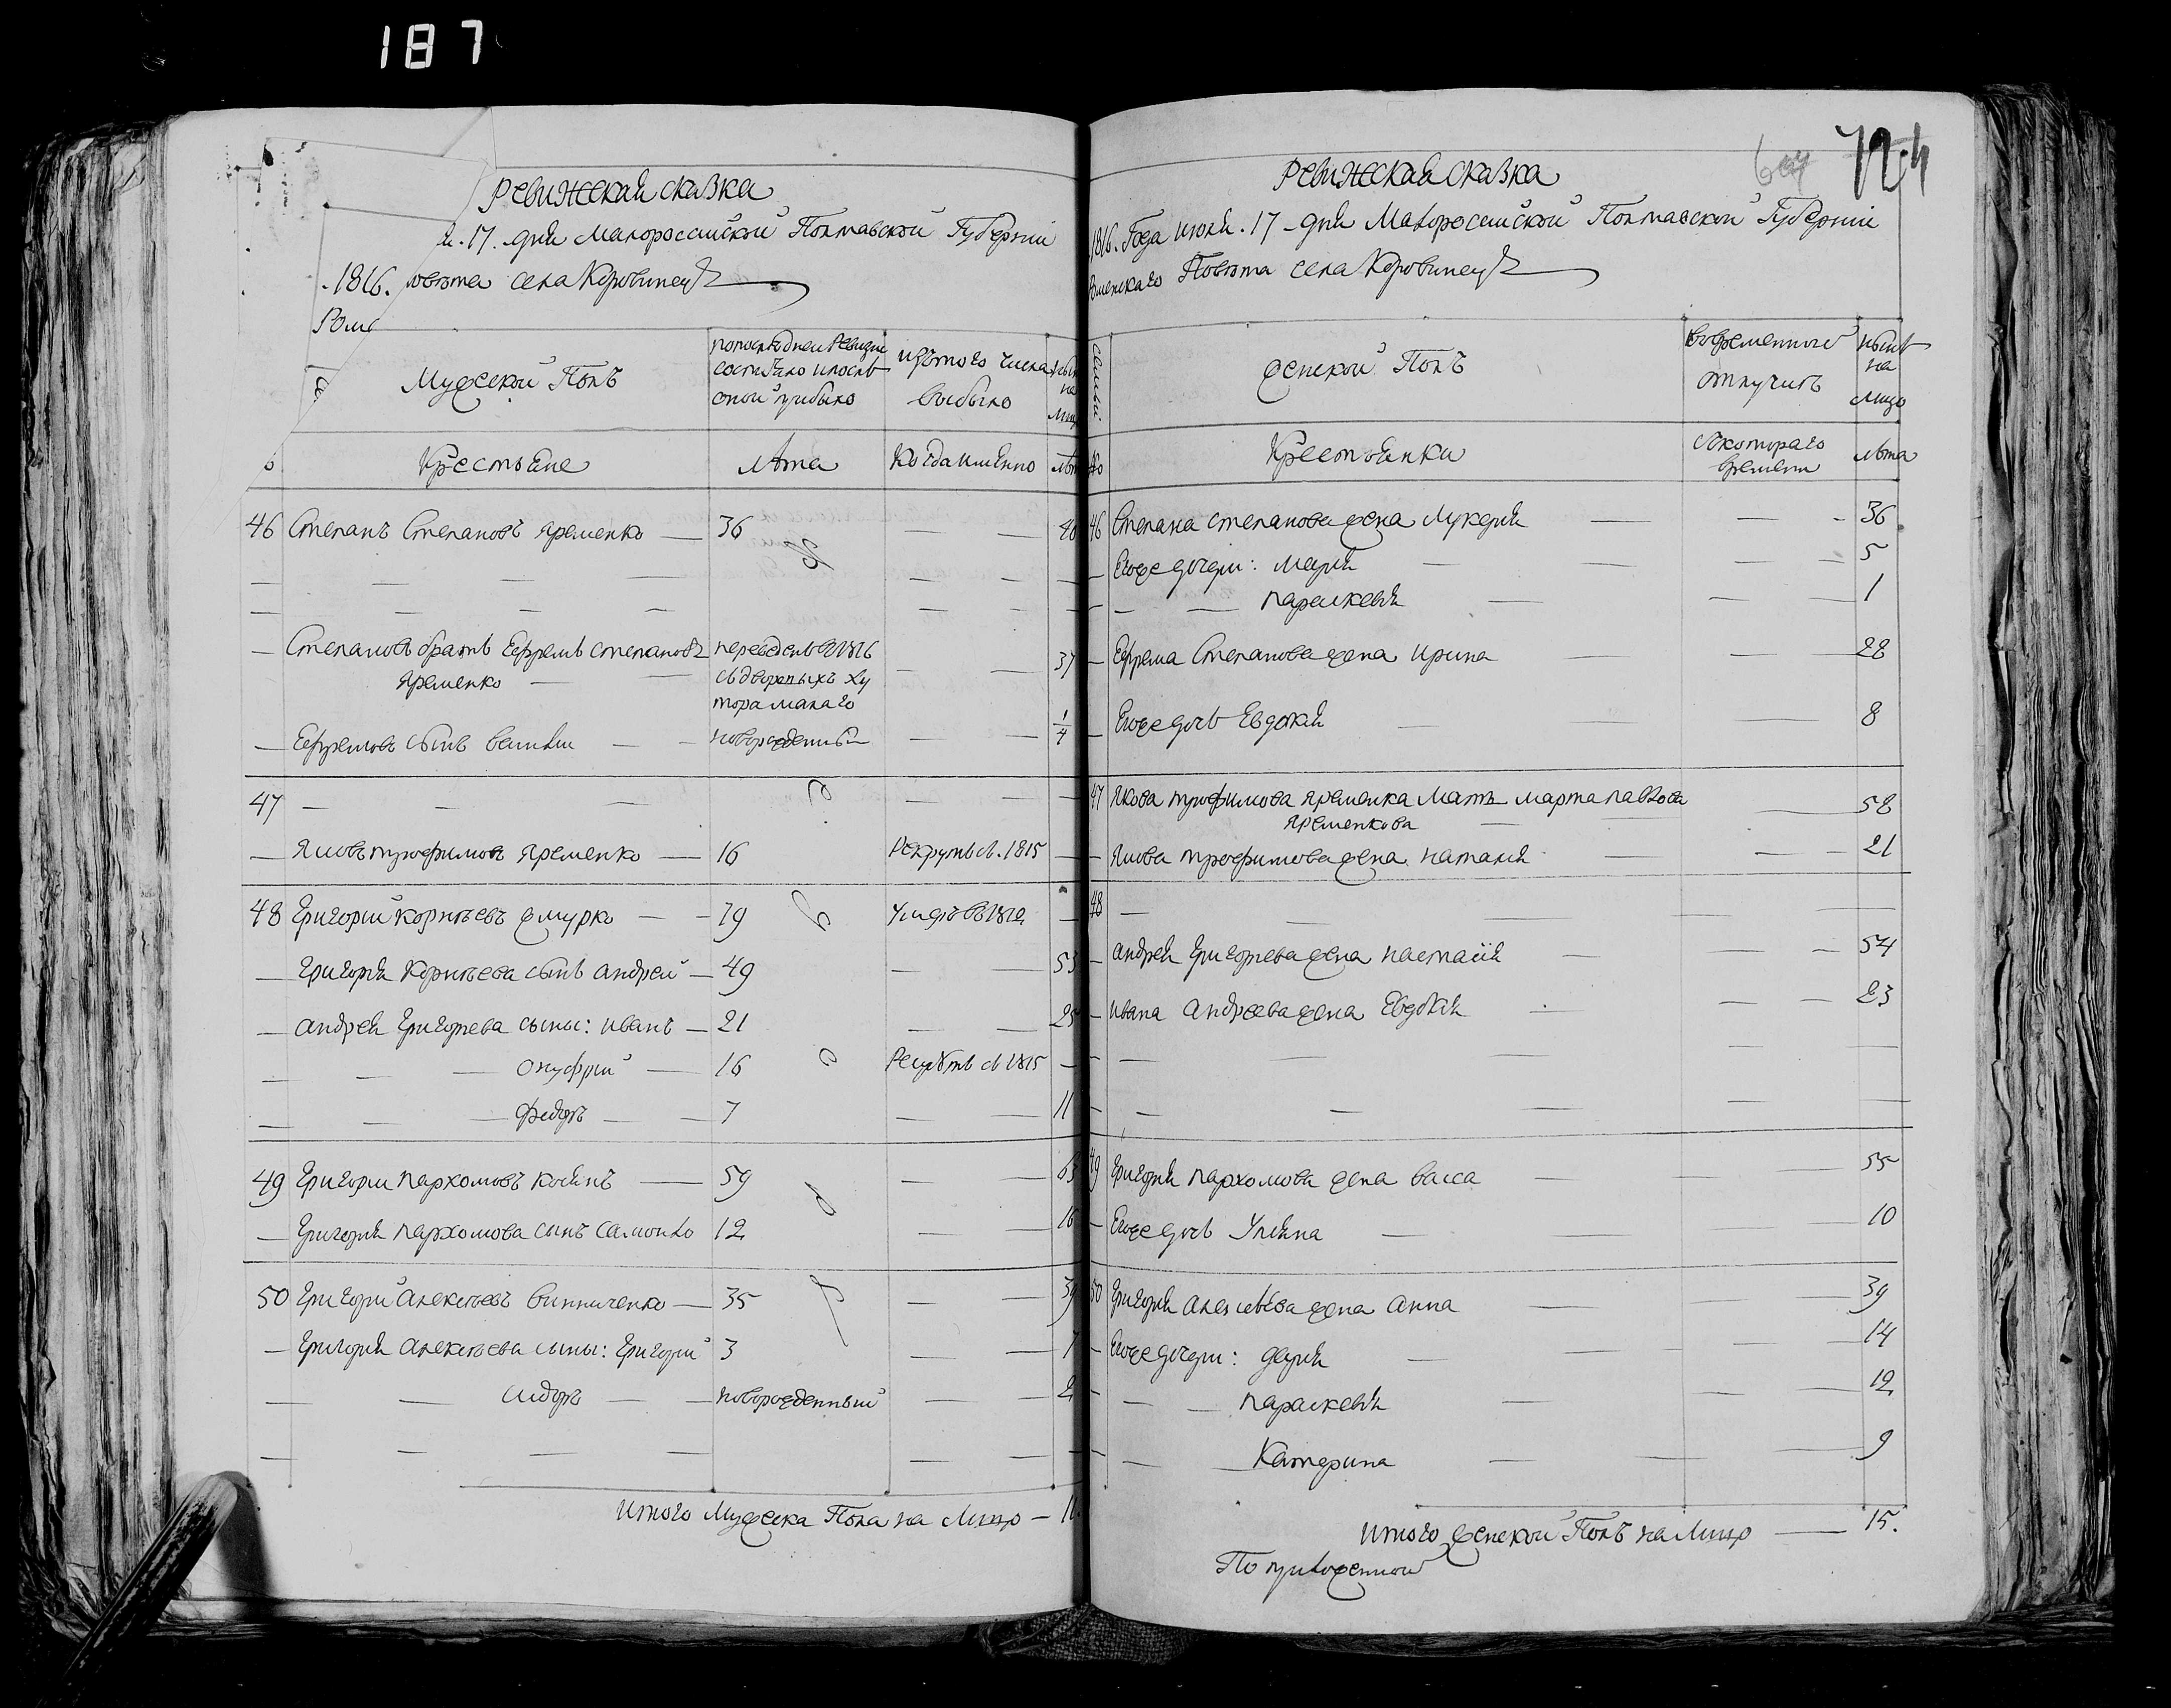 187
Ревижская сказка
я. 17. дня Малороссийской Полтавской Губернии
1816. повѣта села Коровинецъ
Роме
Мужеской Полъ
по последнеи Ревизии
состояло и послѣ
оной прибыло
изъ того числа
выбыло
ныне
на
лицо
Крестьяне
Лѣта
Когда имянно
Лѣта
46 Степанъ Степановъ Яременко — 36 — — 40
Степановъ братъ Ефремъ Степановъ переведенъ въ 1816 — — 37
Яременко — — съ дворовыхъ ху
тора малаго
Ефремовъ сынъ василий — — новорожденный — — 1/4
47 — — — — —
— Яковъ трофимовъ Яременко — 16 Рекрутъ въ. 1815 —
48 Григорий корнѣевъ жмурко — — 79 Умеръ въ 1812 —
— Григорія Корнѣева сынъ андрей — 49 — — 53
— андрея григорьева сыны: иванъ — 21 — — 25
— — — онуфрий — 16 Рекрутъ въ 1815 —
— — — федоръ — — 7 — — 11
49 Григорий пархомовъ косинъ — 59 — — 63
— Григорія пархомова сынъ самойло 12 — — 16
50 Григорий алексѣевъ винниченко — 35 — — 39
— Григорія алексѣева сыны: Григорий 3 — — 7
— — сидоръ — — новорожденный — — 2
итого Мужеска Пола на Лицо — 11
724
Ревижская сказка
1816. Года июня. 17 дня Малороссийской Полтавской Губернии
Роменскаго Повѣта села Коровинецъ
семьи
Женской Полъ
во временной
отлучкѣ
нынѣ
на
лицо
№
Крестьянки
съ котораго
времени
лѣта
46 Степана степанова жена Лукерия — — - 36
— Егоже дочери: Мария — — — 5
— — — параскевия — — — 1
— Ефрема Степанова жена ирина — — — 28
— Егоже дочь Евдокия — — — 8
47 Якова трофимова Яременка Мать марта павлова — 58
Яременкова
— Якова трофимова жена. наталия — — — 21
48 — — — —
— андрея григорьева жена настасия — — — 54
— ивана андреева жена Евдокия — — 23
49 Григорія пархомова жена васса — — — 55
— Егоже дочь Улияна — — — 10
50 Григорія алексѣева жена анна — — — 39
— Егоже дочери: дария — — — 14
— — — параскевия — — — 12
— — — Катерина — — — 9
итого женской Полъ на Лицо — 15.
По приложенной